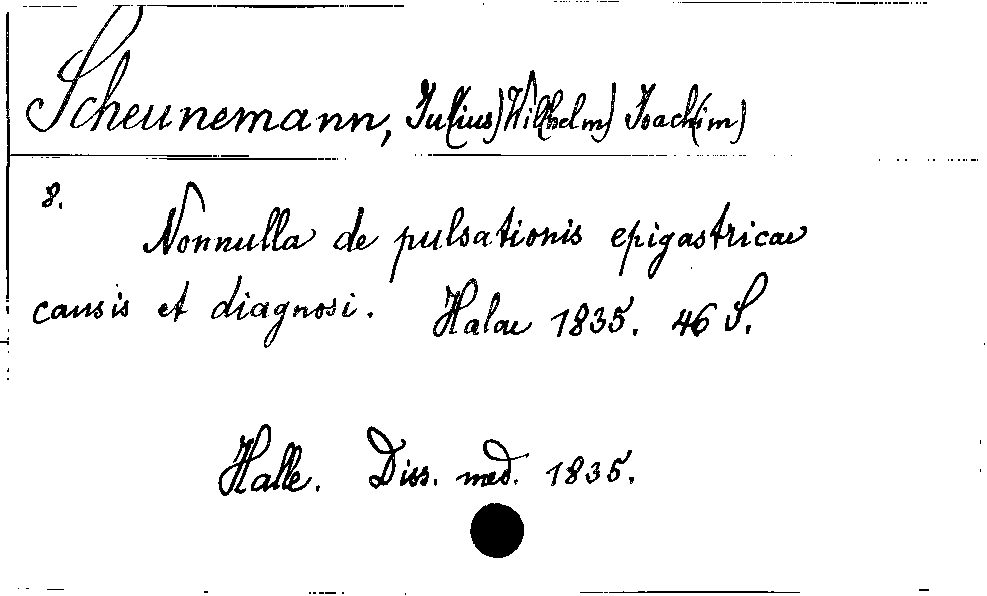 Scheunemann, Jul(ius) Wil(helm) Joach(im)
8.
Nonnulla de pulsationis epigastricae
causis et diagnosi. Halae 1835. 46 S.
Halle. Diss. med. 1835.